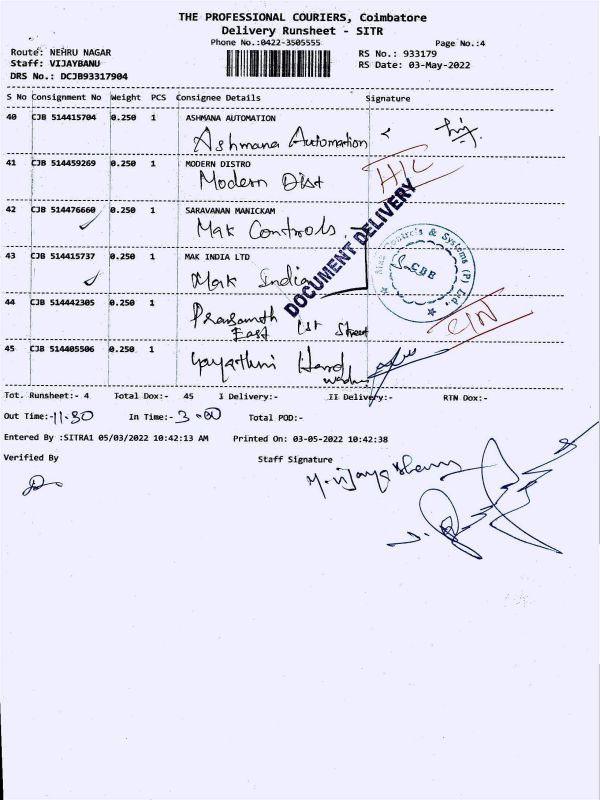 THE PROFESSIONAL COURIERS, Coimbatore
Delivery Runsheet - SITR
Phone No.:0422-3505555
Page No.:4
Route: NEHRU NAGAR
RS No.: 933179
Staff: VIJAYBANU
RS Date: 03-May-2022
DRS No.: DCJB93317904
S No Consignment No Weight PCS Consignee Details Signature
40 CJB 514415704 0.250 1 ASHMANA AUTOMATION
Ashmana Automation
41 CJB 514459269 0.250 1 MODERN DISTRO
Modern Dist
H/C
42 CJB 514476660 0.250 1 SARAVANAN MANICKAM
Mak Controls.
DOCUMENT DELIVERY
Controls & Systems (P) Ltd.
CBB
43 CJB 514415737 0.250 1 MAK INDIA LTD
Mak India
44 CJB 514442305 0.250 1
East 1st Street
C/N
45 CJB 514405506 0.250 1
Tot. Runsheet:- 4 Total Dox:- 45 I Delivery:- II Delivery:- RTN Dox:-
Out Time:-11.30 In Time:- 3.00 Total POD:-
Entered By :SITRA1 05/03/2022 10:42:13 AM Printed On: 03-05-2022 10:42:38
Verified By Staff Signature